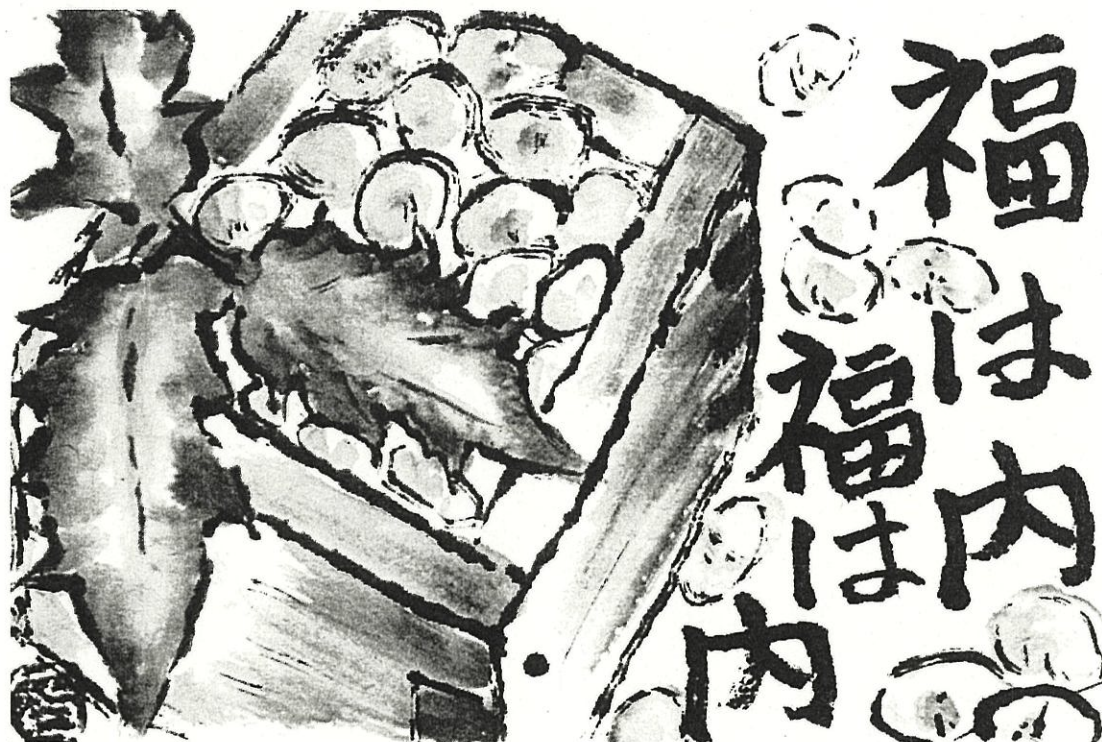 福は内
福は内